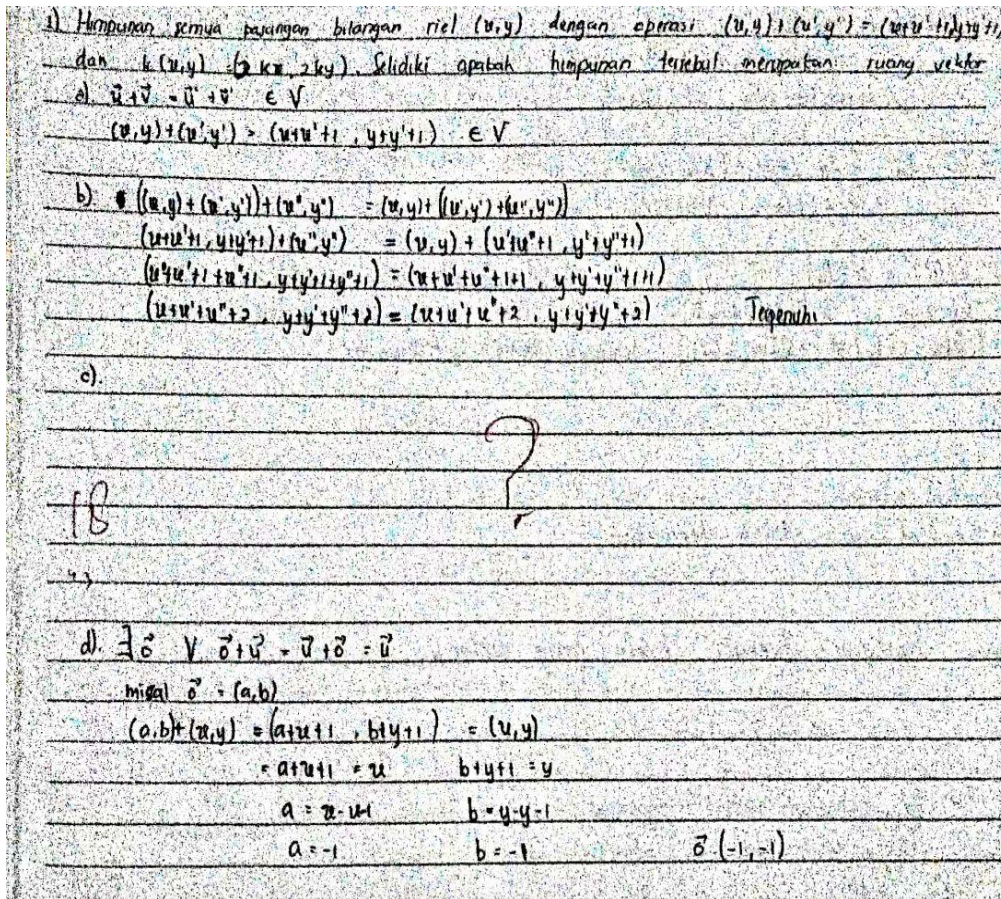 1) Himpunan semua pasangan bilangan riel (x,y) dengan operasi (x,y) + (x',y') = (x+x'+1, y+y'+1)
dan k(x,y) = (2kx, 2ky). Selidiki apabah himpunan tersebut merupakan ruang vektor
a) u⃗ + v⃗ = u⃗ + v⃗ ∈ V
(x,y)+(x',y') = (x+x'+1, y+y'+1) ∈ V
b) ((x,y)+(x',y'))+(x",y") = (x,y)+((x',y')+(x",y"))
(x+x'+1, y+y'+1)+(x",y") = (x,y) + (x'+x"+1, y'+y"+1)
(x+x'+1+x"+1, y+y'+1+y"+1) = (x+x'+x"+1+1, y+y'+y"+1+1)
(x+x'+x"+2, y+y'+y"+2) = (x+x'+x"+2, y+y'+y"+2) Terpenuhi
c).
?
18
d). ∃ o⃗ V o⃗+u⃗ = u⃗+o⃗ = u⃗
misal o⃗ = (a,b)
(a,b)+(x,y) = (a+x+1, b+y+1) = (x,y)
= a+x+1 = x b+y+1 = y
a = x-x-1 b = y-y-1
a = -1 b = -1 o⃗ (-1,-1)